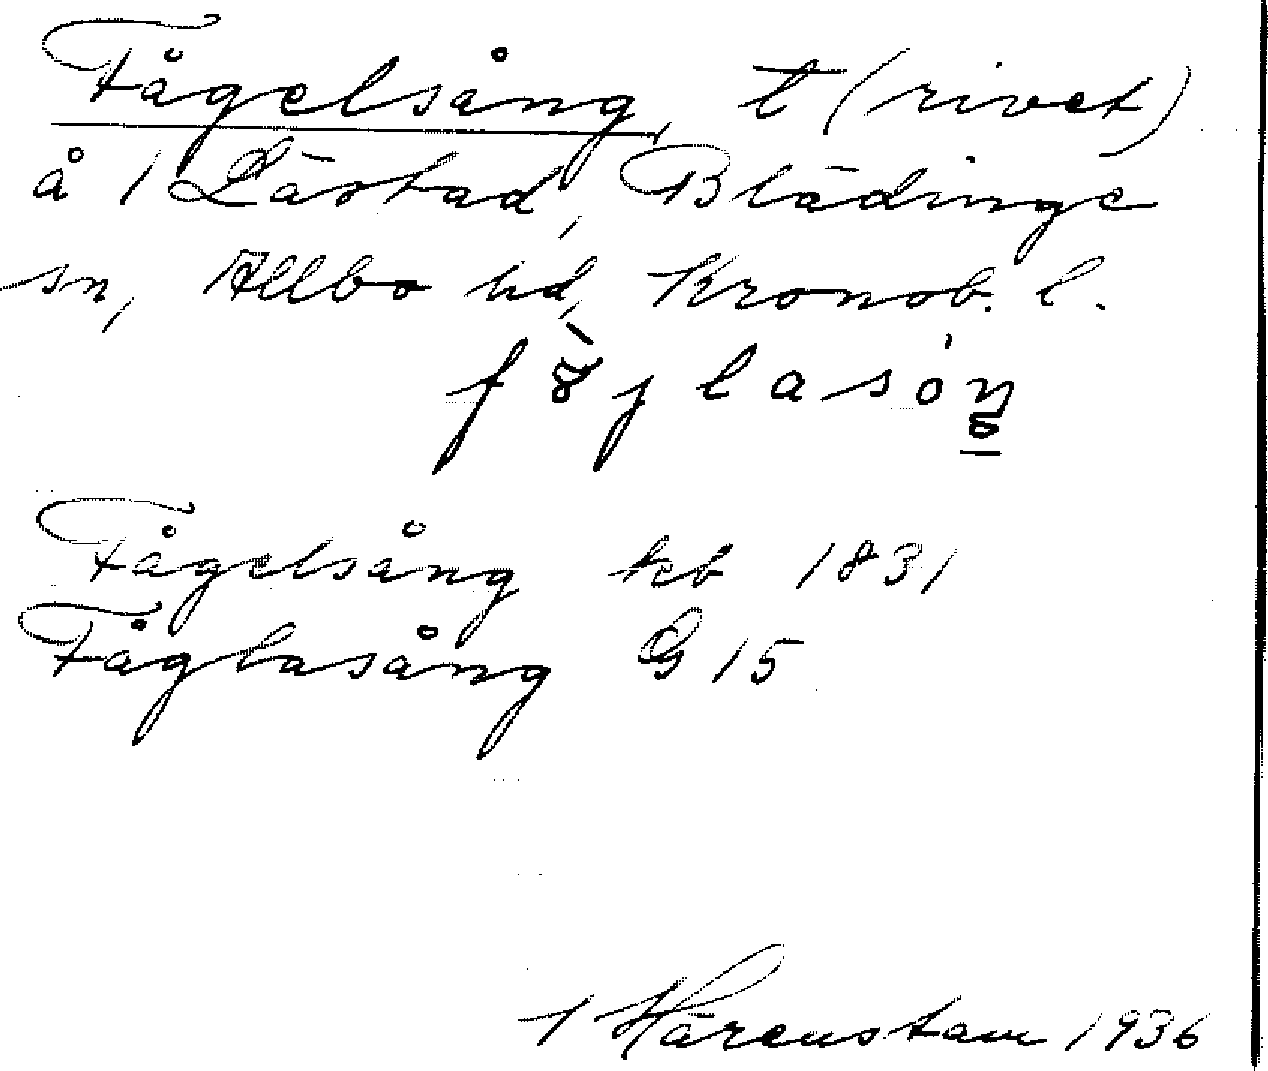 Fågelsång, t (rivet)
å 1 Lästad, Blädinge
sn, Allbo hd, Kronob. l.
Fågelsång kcb 1831
Fåglasång G 15
Härenstam 1936